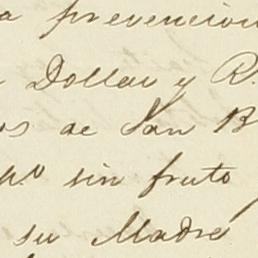 a prevencion
Dollar y R.
os de San B
sin fruto
su Madre